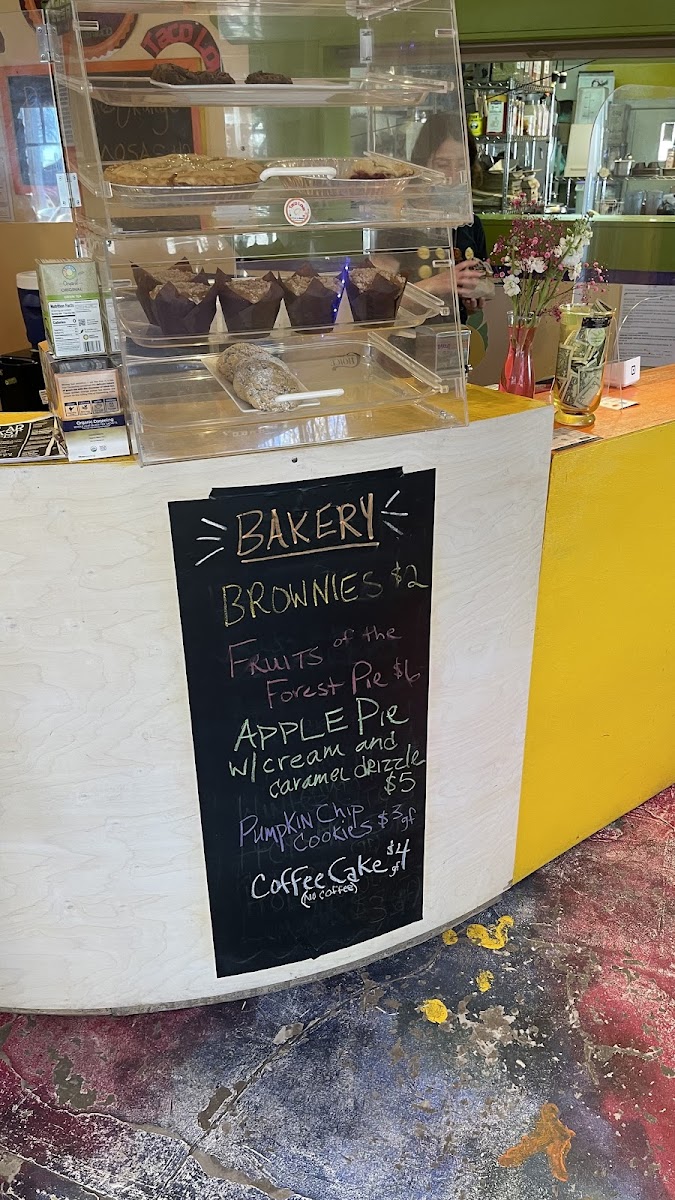 Taco Lo
ORIGINAL
Nutrition Facts
Calories
BAKERY
BROWNIES $2
FRUITS of the
Forest Pie $6
APPLE Pie
w/cream and
caramel drizzle
$5
PUMPKIN CHIP
COOKIES $3 gf
Coffee Cake $4 gf
(NO COFFEE)